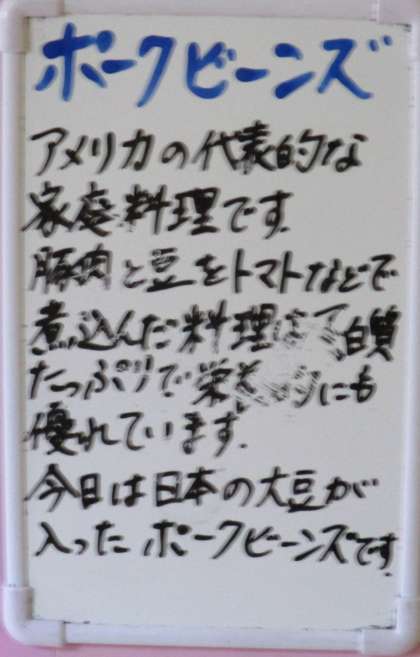 ポークビーンズ
アメリカの代表的な
家庭料理です。
豚肉と豆をトマトなどで
煮込んだ料理 白質
たっぷりで栄 的にも
優れています。
今日は日本の大豆が
入ったポークビーンズです